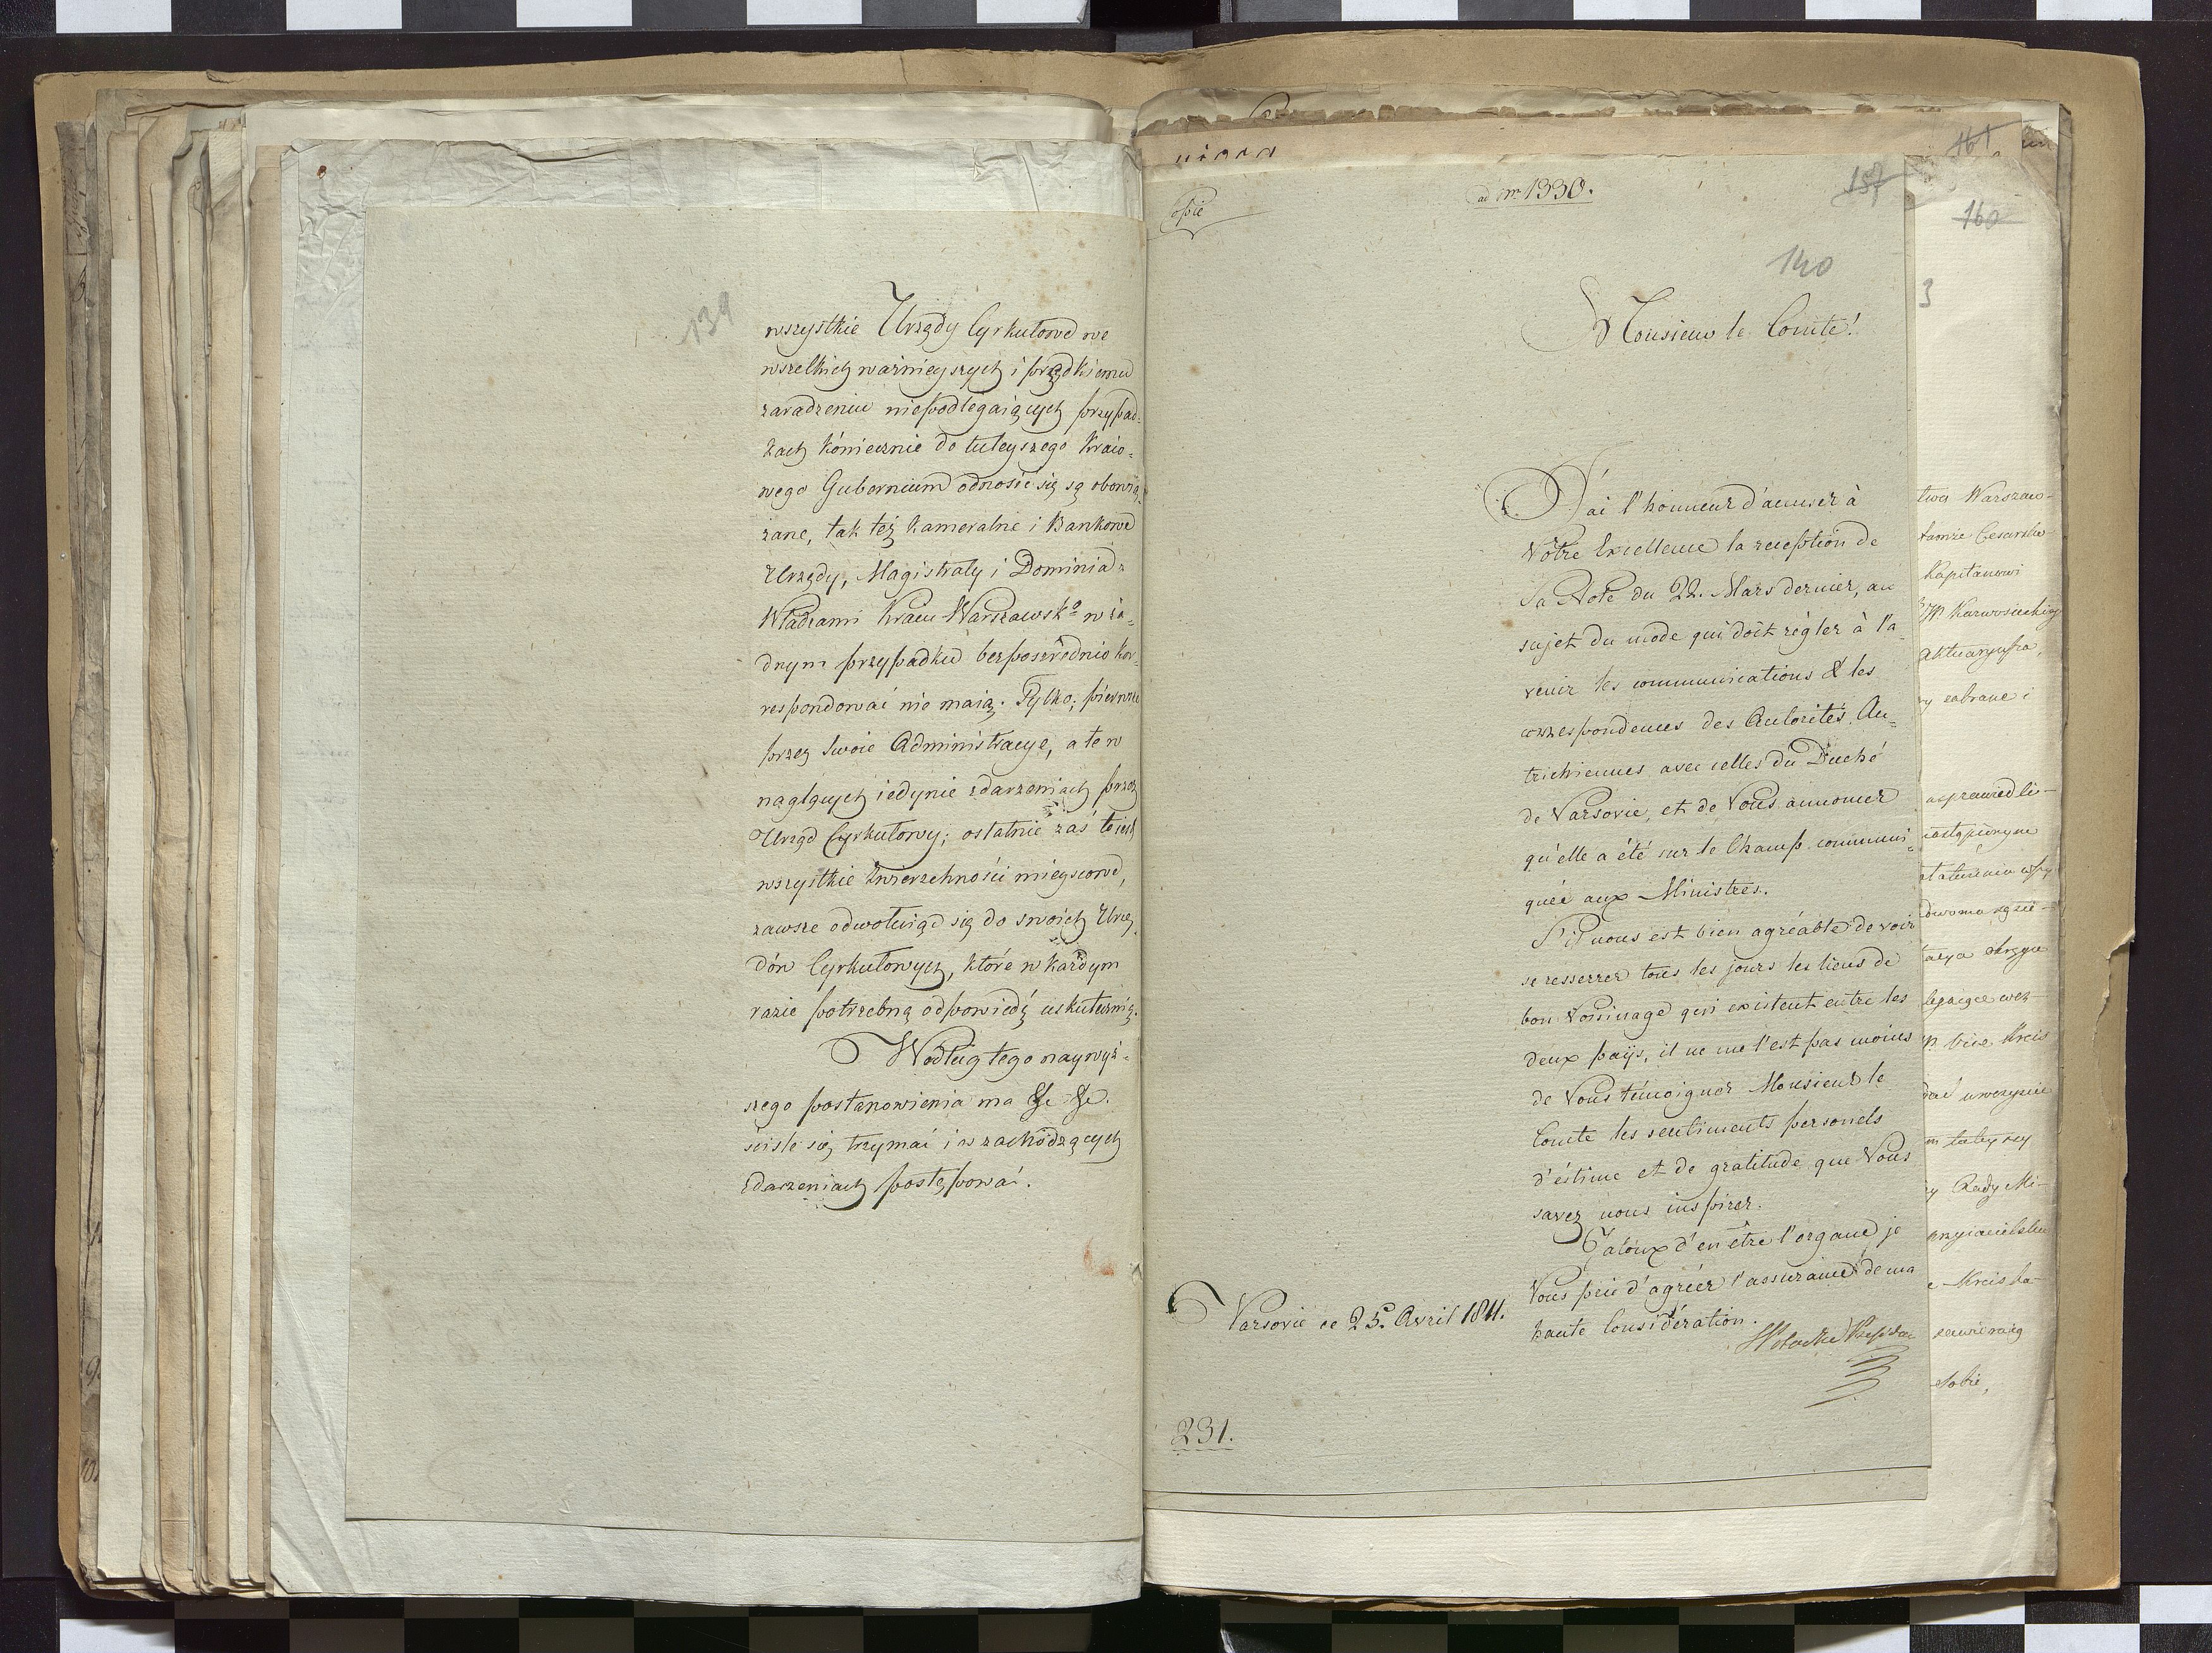 139
wszystkie Urzędy Cyrkułowe we
wszelkich ważnieyszych i prędkiemu
zaradzeniu niepodlegaiących przypad-
kach koniecznie do tuteyszego Kraio-
wego Gubernium odnosić się są obowią-
zane, tak też Kameralne i Bankowe
Urzędy, Magistraty i Dominia z
Władzami Kraiu Warszawsko w ża-
dnym przypadku bezpośrednio kor-
respondować nie maią. Tylko; pierwsze
przez swoie Administracye, a te w
naglących iedynie zdarzeniach przez
Urząd Cyrkułowy; ostatnie zaś to iest
wszystkie Zwierzchności mieyscowe,
zawsze odwołuiąc się do swoich Urzę-
dów Cyrkułowych, które w każdym
razie potrzebną odpowiedź uskutecznią.
Według tego naywyż-
szego postanowienia ma &c &c.
ściśle się trzymać i w zachodzących
zdarzeniach postępować.
Copie
ad Nr 1330.
157
140
Monsieur le Comte!
J'ai l'honneur d'accuser à
Votre Excellence la reception de
Sa Note du 22. Mars dernier, au
sujet du mode qui doit régler à l'a-
venir les communications & les
correspondences des Autorités Au-
trichiennes avec celles du Duché
de Varsovie, et de Vous annoncer
qu'elle a été sur le Champ communi-
quée aux Ministres.
S'il nous est bien agréable de voir
se resserrer tous les jours les liens de
bon Voisinage qui existent entre les
deux païs, il ne me l'est pas moins
de Vous témoigner Monsieur le
Comte les sentiments personels
d'éstime et de gratitude que Vous
savez nous inspirer.
Jaloux d'en être l'organe je
Vous prie d'agréer l'assurance de ma
haute Considération.
Varsovie ce 25. Avril 1811.
231.
161
160
3
twa Warszaw-
Kapitanowi
zabrane i
Rady Mi-
sobie,